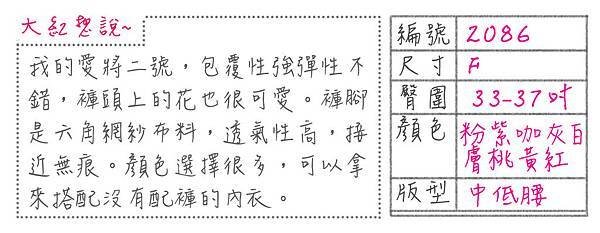 大紅想說~
我的愛將二號，包覆性強彈性不
錯，褲頭上的花也很可愛。褲腳
是六角網紗布料，透氣性高，接
近無痕。顏色選擇很多，可以拿
來搭配沒有配褲的內衣。
編號 2086
尺寸 F
臀圍 33-37吋
顏色 粉紫咖灰白
膚桃黃紅
版型 中低腰